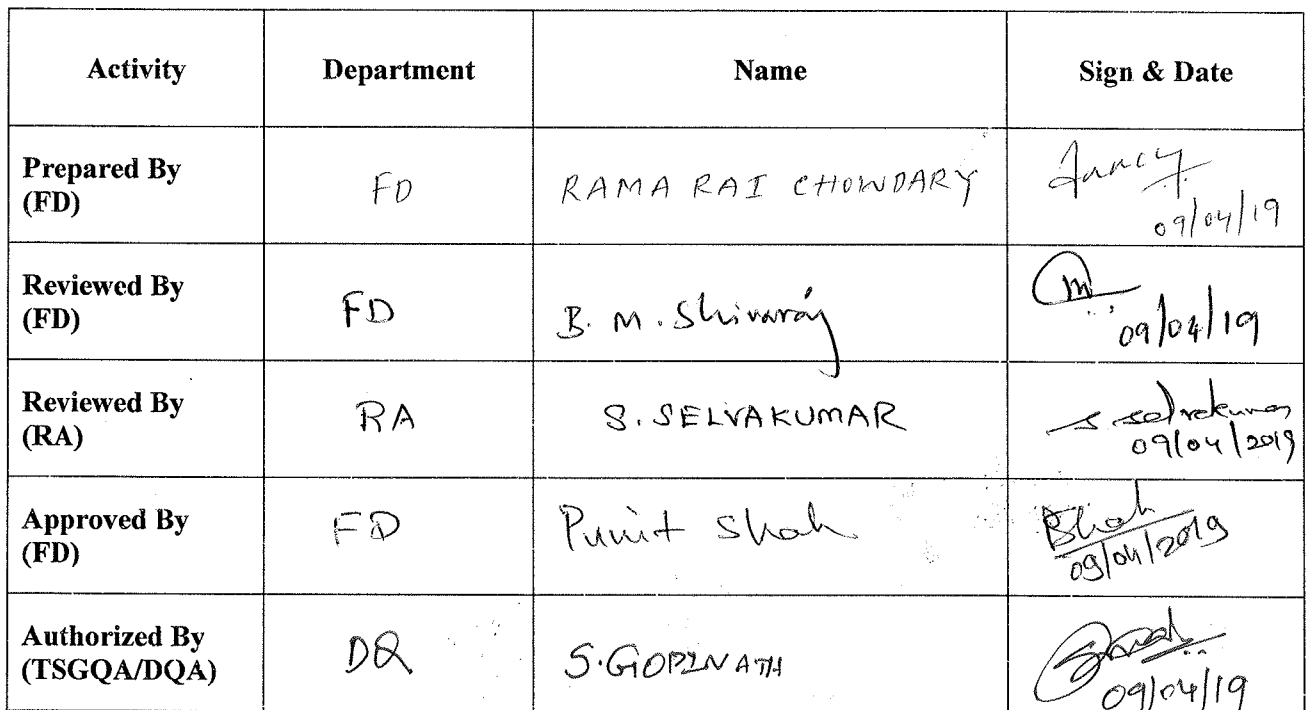 Activity Department Name Sign & Date
Prepared By
(FD) FD RAMA RAI CHOWDARY
09/04/19
Reviewed By
(FD) FD B. M. Shivaraj
09/04/19
Reviewed By
(RA) RA S. SELVAKUMAR S Selvakumar
09/04/2019
Approved By
(FD) FD Punit Shah
09/04/2019
Authorized By
(TSGQA/DQA) DQ S. GOPINATH
09/04/19